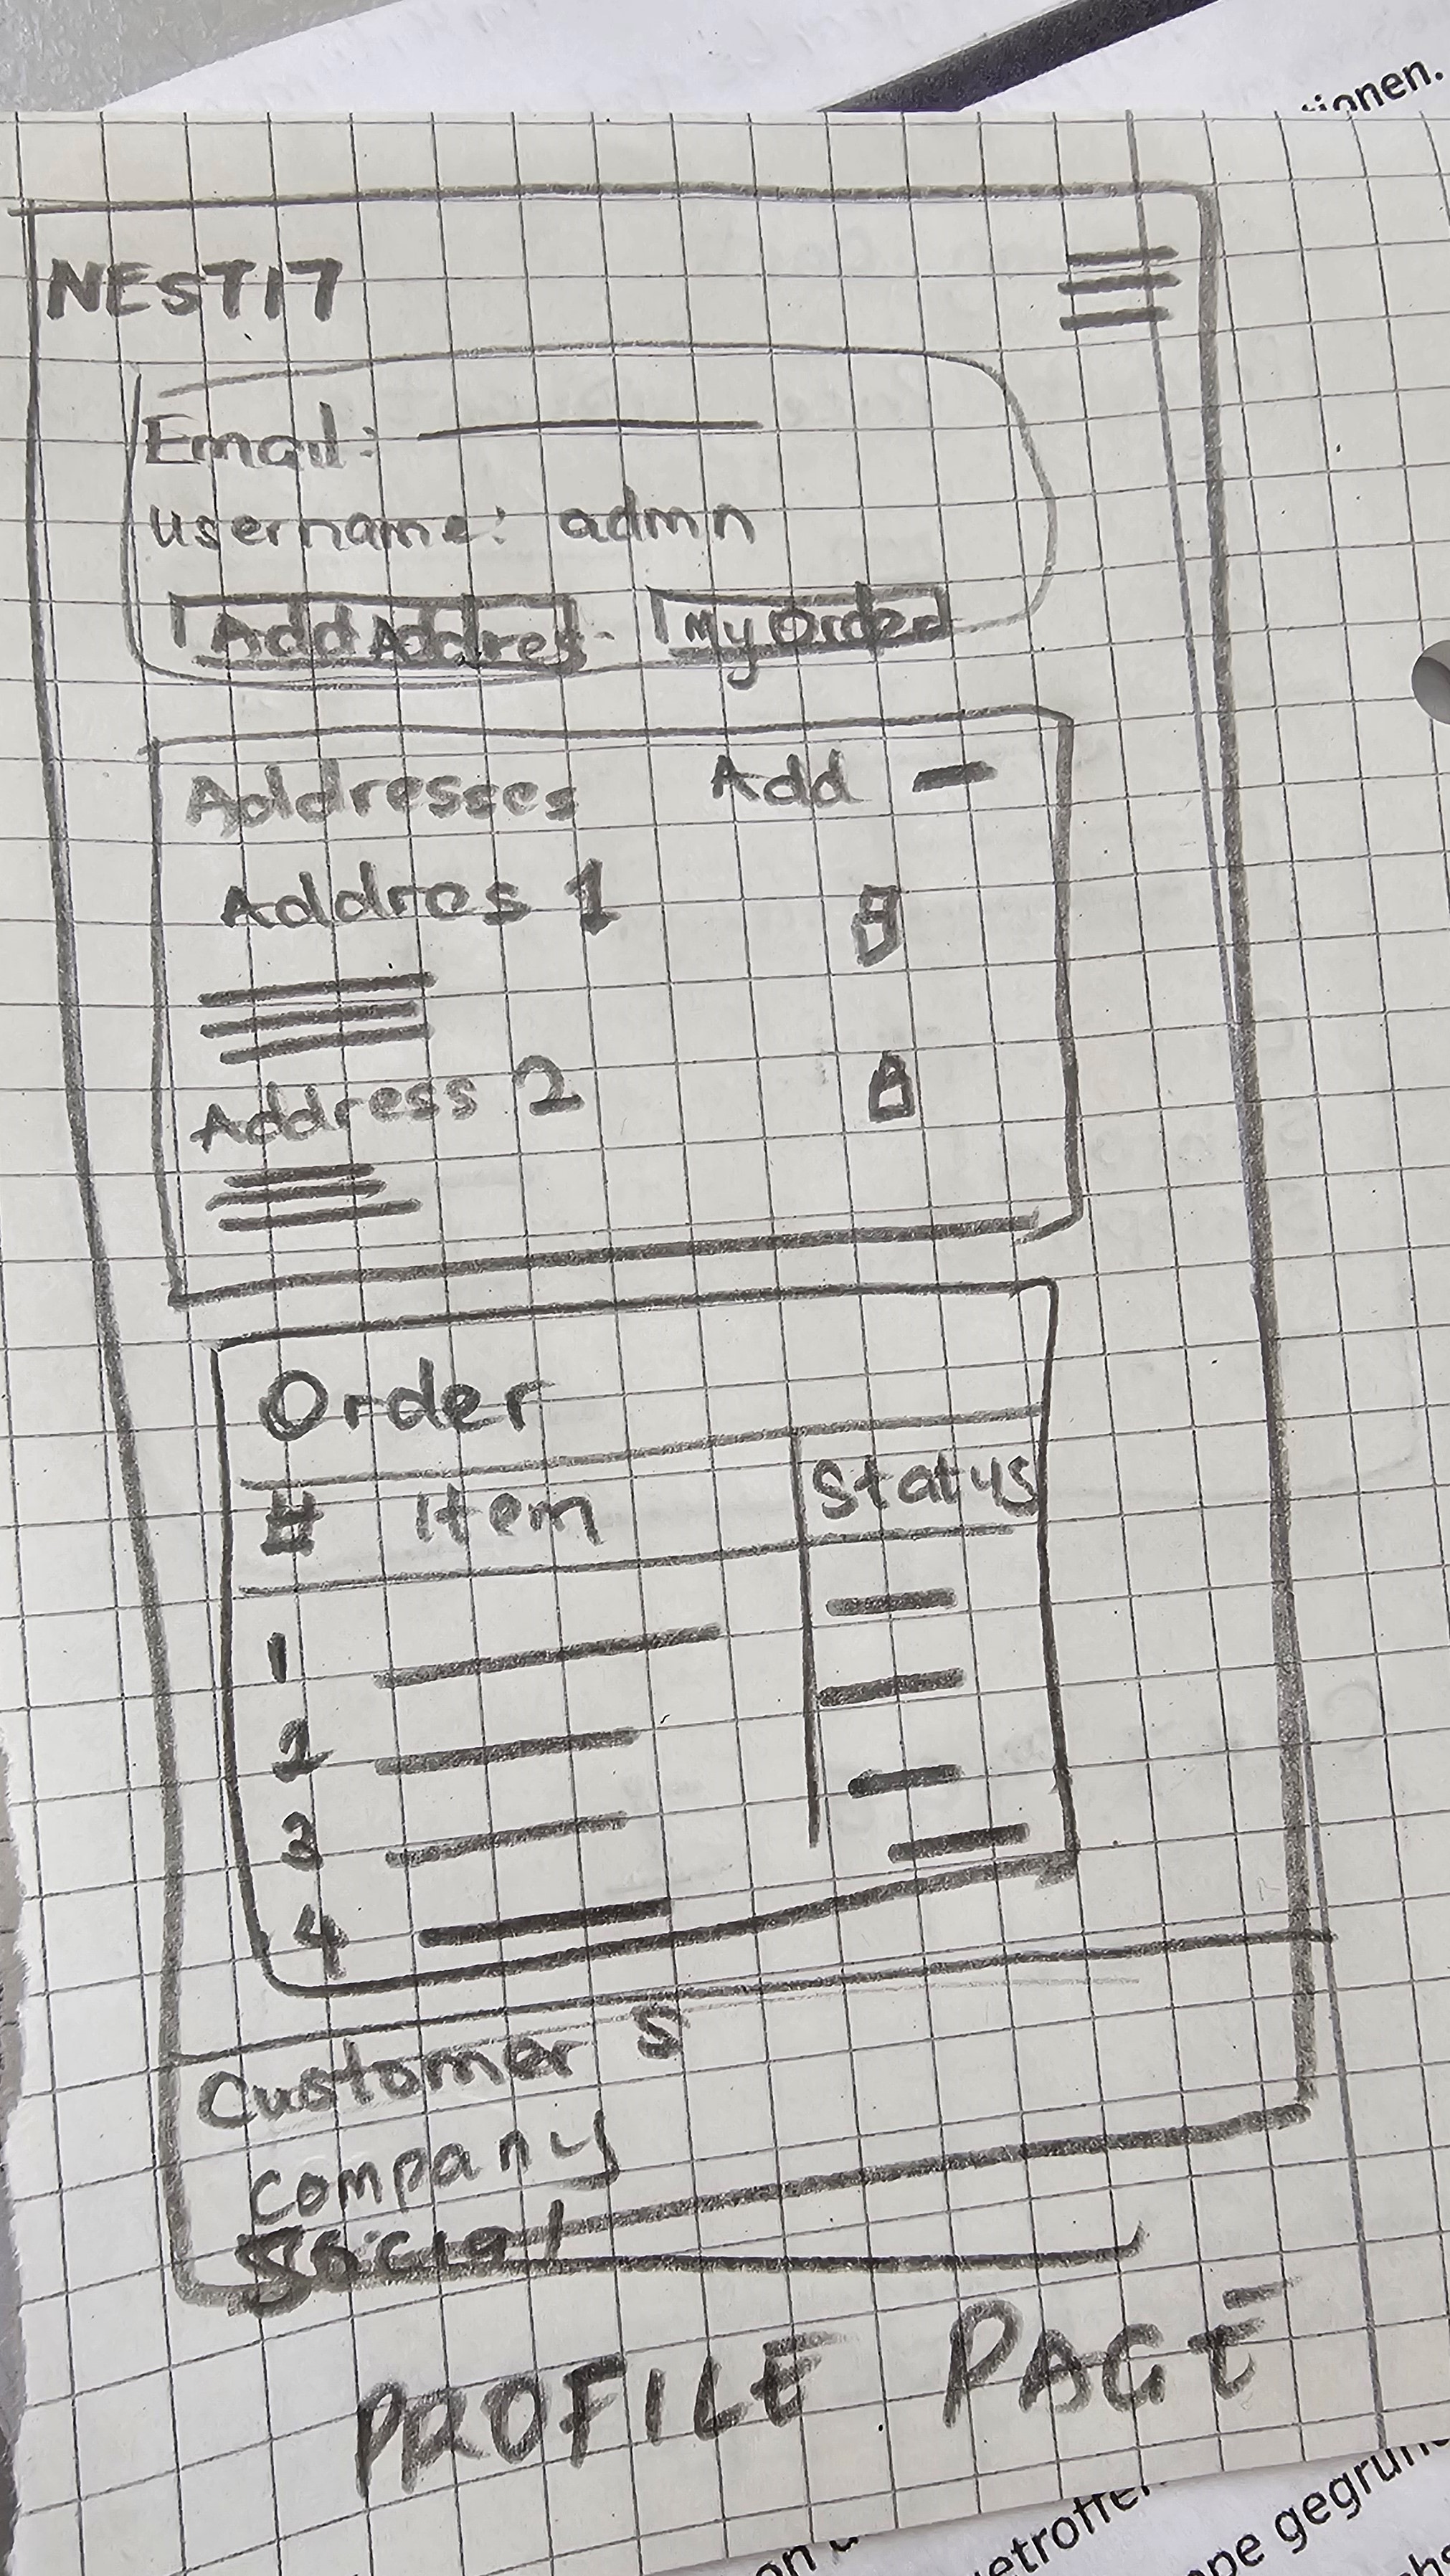 ionen.
NEST17
Email:
username: admn
Add Addres My Order
Addresses Add
Addres 1
Address 2
Order
# Item Status
1
2
3
4
Customer S
Company
Social
PROFILE PAGE